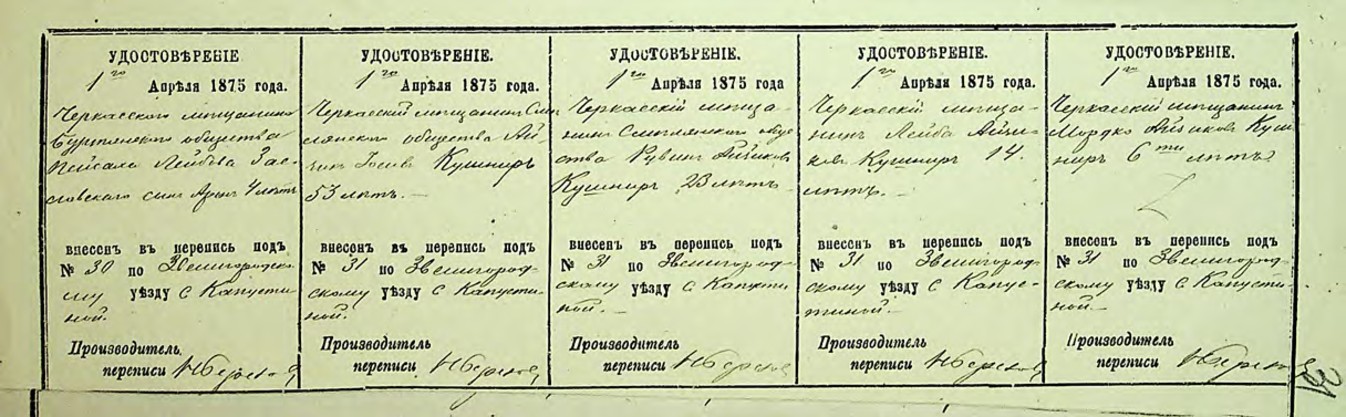 УДОСТОВѢРЕНІЕ
1го Апрѣля 1875 года.
Черкасскаго мѣщанина
общества
Лейбова Зас-
лавскаго сынъ 4 лѣтъ
внесенъ въ перепись подъ
№ 30 по Звенигородско-
му уѣзду С Капусти-
ной.
Производитель
переписи
УДОСТОВѢРЕНІЕ.
1го Апрѣля 1875 года.
Черкасскій мѣщанинъ Смѣ-
лянскаго общества Ай-
Кушниръ
53 лѣтъ. —
внесенъ въ перепись подъ
№ 31 по Звенигород-
скому уѣзду С Капусти-
ной.
Производитель
переписи
УДОСТОВѢРЕНІЕ.
1го Апрѣля 1875 года
Черкасскій мѣща-
нинъ Смѣлянскаго обще-
ства Рувинъ Айзиковъ
Кушниръ 23 лѣтъ
внесенъ въ перепись подъ
№ 31 по Звенигород-
скому уѣзду С Капусти-
ной. —
Производитель
переписи
УДОСТОВѢРЕНІЕ.
1го Апрѣля 1875 года.
Черкасскій мѣща-
нинъ Лейба Айзи-
ковъ Кушниръ 14.
лѣтъ. —
внесенъ въ перепись подъ
№ 31 по Звенигород-
скому уѣзду С Капус-
тиной. —
Производитель
переписи
УДОСТОВѢРЕНІЕ.
1го Апрѣля 1875 года.
Черкасскій мѣщанинъ
Мордко Айзиковъ Куш-
ниръ 6ти лѣтъ
внесенъ въ перепись подъ
№ 31 по Звенигород-
скому уѣзду С Капусти-
ной. —
Производитель
переписи